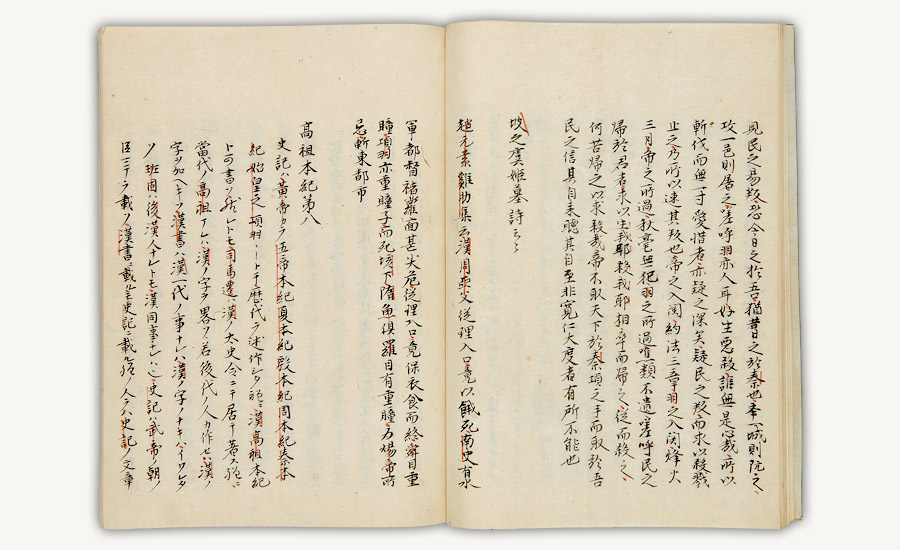 見民之易叛忿今日之於吾猶昔日之於秦也奉一城則阬之
攻一邑則屠之嗟呼羽亦人耳好生悪殺誰無是心哉所以
斬伐而無一寸愛惜者亦疑之深矣疑民之叛而求以殺戮
止之乃所以速其叛也帝之入関約法三章羽之入関烽火
三月帝之所過秋毫無犯羽之所過噍類不遺嗟呼民之
帰於君者求以生我耶殺我耶相率而帰之従而殺之
何苦帰之以求殺哉帝不取天下於秦項之手而取於吾
民之信其自来聴其自至非寛仁大度者有所不能也
坟之虞姫墓詩云々
趙元素雞肋集云漢周亜父従理入口竟以餓死南史有水
軍都督褚蘿面甚尖危従理入口竟保衣食而終舜目重
瞳項羽亦重瞳子而死垓下隋魚倶羅目有重瞳為煬帝所
忌斬東都市
高祖本紀第八
史記ハ黄帝カラ五帝本紀夏本紀殷本紀周本紀秦本
紀始皇之項羽ートテ歴代ヲ述作シタ程ニ漢高祖本紀
トコソ書ソ然レトモ司馬遷ハ漢ノ太史令ニテ居テ著ソ程ニ
當代ノ高祖ナレハ漢ノ字ヲ畧ソ若後代ノ人カ作セハ漢ノ
字ヲ加ヘキソ漢書ハ漢一代ノ事ナレハ漢ノ字ノナキハイワレタ
ソ班固ハ後漢人ナレトモ漢同事ナレハソ史記ハ武帝ノ朝ノ
臣ニテヲ載ソ漢書ニ載ヲ史記ニ載ル程ノ人ヲハ史記ノ文章